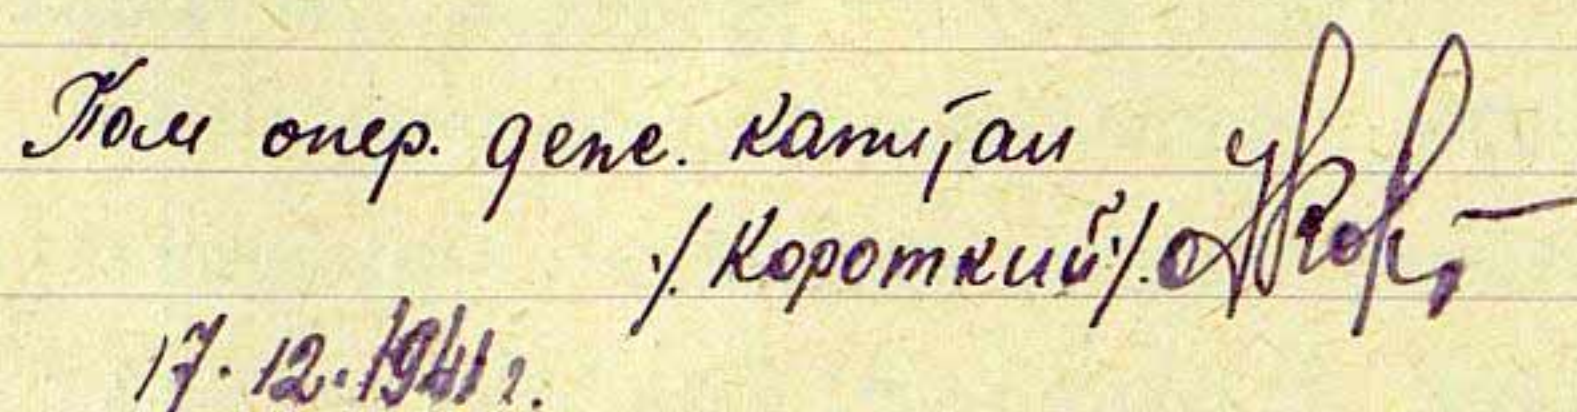 Пом опер. деже. капитан
/. Короткий ./.
17.12.1941 г.